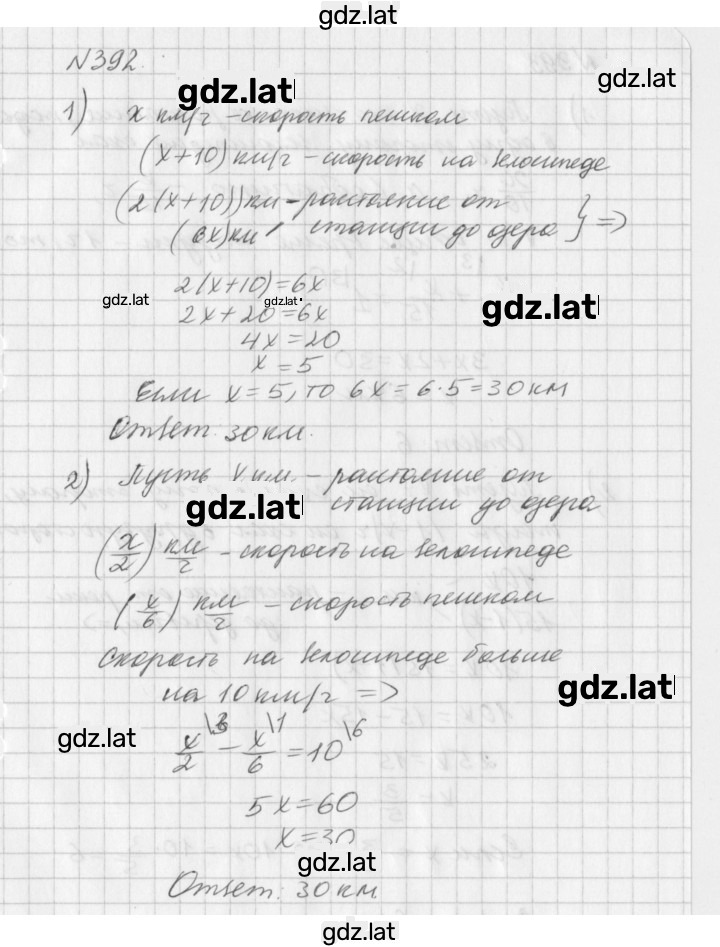 gdz.lat
N392.
gdz.lat
gdz.lat
1) x км/г - скорость пешком
(x+10) км/г - скорость на велосипеде
(2(x+10))км - расстояние от
(6x)км станции до озера } =>
2(x+10)=6x
gdz.lat
gdz.lat
gdz.lat
2x+20=6x
4x=20
x=5
Если x=5, то 6x=6·5=30км
Ответ: 30 км.
2) Пусть x км. - расстояние от
gdz.lat
станции до озера
(x/2) км/г - скорость на велосипеде
(x/6) км/г - скорость пешком
Скорость на велосипеде больше
gdz.lat
на 10 км/г =>
gdz.lat
x/2 \3 - x/6 \1 = 10 \6
5x=60
x=30
gdz.lat
Ответ: 30 км
gdz.lat